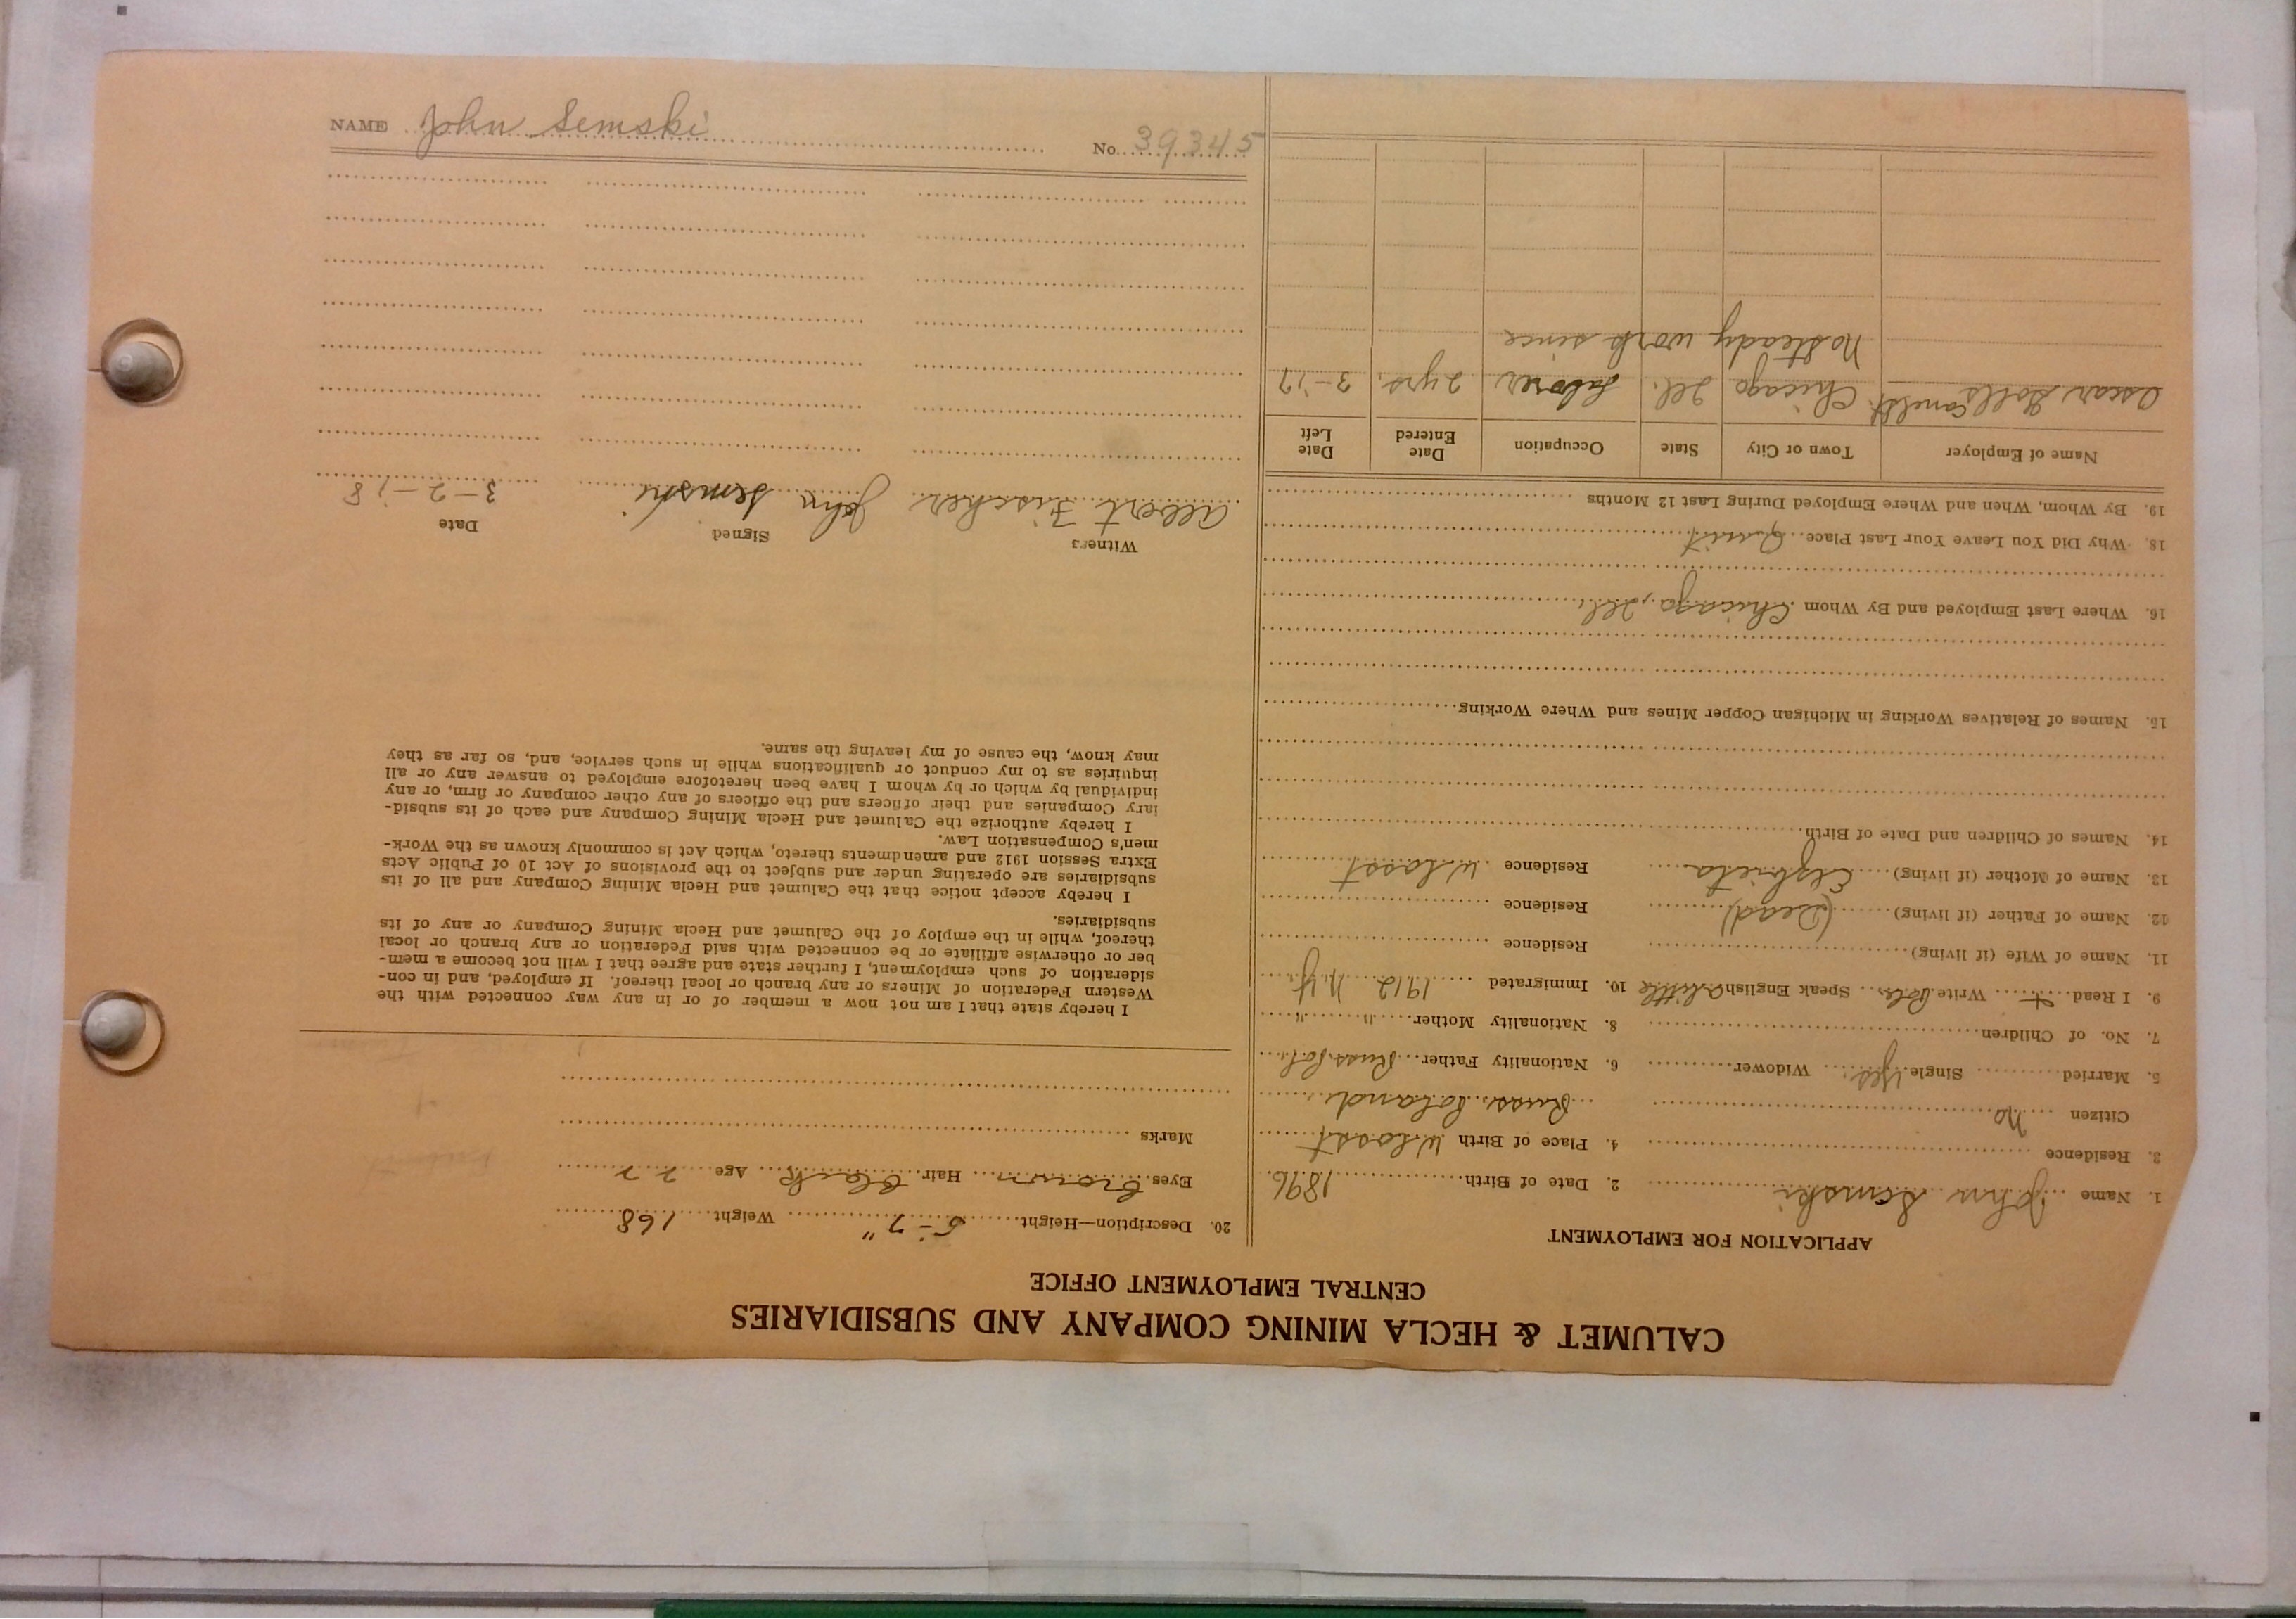 CALUMET & HECLA MINING COMPANY AND SUBSIDIARIES
CENTRAL EMPLOYMENT OFFICE
APPLICATION FOR EMPLOYMENT
1. Name John Semski 2. Date of Birth 1896
3. Residence 4. Place of Birth Wlosst
Citizen no Russ. Poland
5. Married Single yes Widower 6. Nationality Father Russ. Pol.
7. No. of Children 8. Nationality Mother " "
9. I Read + Write Pols. Speak English Little 10. Immigrated 1912 N.Y.
11. Name of Wife (if living) Residence
12. Name of Father (if living) (Dead) Residence
13. Name of Mother (if living) Elzbieta Residence Wlosst
14. Names of Children and Date of Birth
15. Names of Relatives Working in Michigan Copper Mines and Where Working
16. Where Last Employed and By Whom Chicago, Ill.
18. Why Did You Leave Your Last Place Quit
19. By Whom, When and Where Employed During Last 12 Months
Name of Employer Town or City State Occupation Date Entered Date Left
Oscar Chicago Ill. Laborer 2 yrs. 3-17
No steady work since
20. Description—Height 5-7" Weight 168
Eyes brown Hair black Age 22
Marks
I hereby state that I am not now a member of or in any way connected with the
Western Federation of Miners or any branch or local thereof. If employed, and in con-
sideration of such employment, I further state and agree that I will not become a mem-
ber or otherwise affiliate or be connected with said Federation or any branch or local
thereof, while in the employ of the Calumet and Hecla Mining Company or any of its
subsidiaries.
I hereby accept notice that the Calumet and Hecla Mining Company and all of its
subsidiaries are operating under and subject to the provisions of Act 10 of Public Acts
Extra Session 1912 and amendments thereto, which Act is commonly known as the Work-
men's Compensation Law.
I hereby authorize the Calumet and Hecla Mining Company and each of its subsid-
iary Companies and their officers and the officers of any other company or firm, or any
individual by which or by whom I have been heretofore employed to answer any or all
inquiries as to my conduct or qualifications while in such service, and, so far as they
may know, the cause of my leaving the same.
Witness Signed Date
Albert Fischer John Semski 3-2-18
NAME John Semski No. 39345